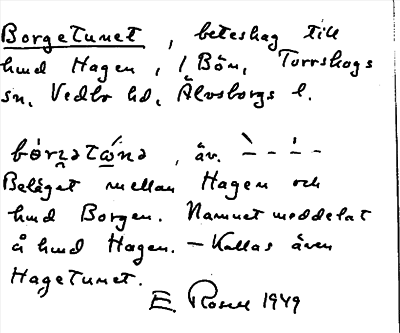 Borgetunet, beteshag till
hmd Hagen, 1 Bön, Torrskogs
sn, Vedbo hd, Älvsborgs l.
bórʒətώ̲nə, äv. ̀– – ́– –
Beläget mellan Hagen och
hmd Borgen. Namnet meddelat
å hmd Hagen. – Kallas även
Hagetunet.
E. Rosell 1949